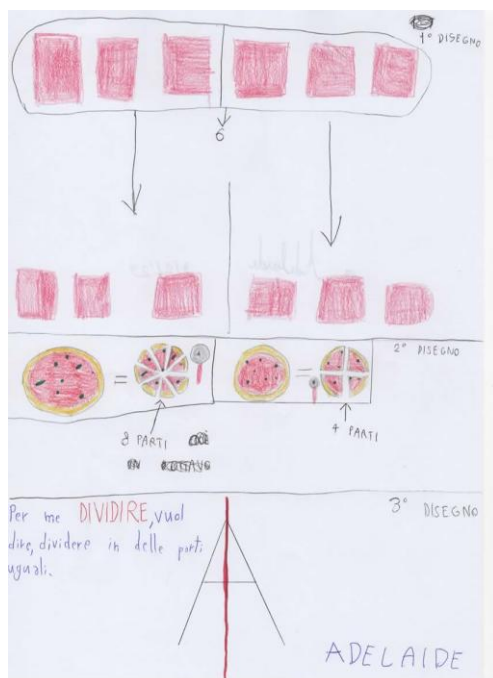 1° DISEGNO
6
2° DISEGNO
8 PARTI
4 PARTI
3° DISEGNO
Per me DIVIDIRE, vuol
dire, dividere in delle parti
uguali.
ADELAIDE